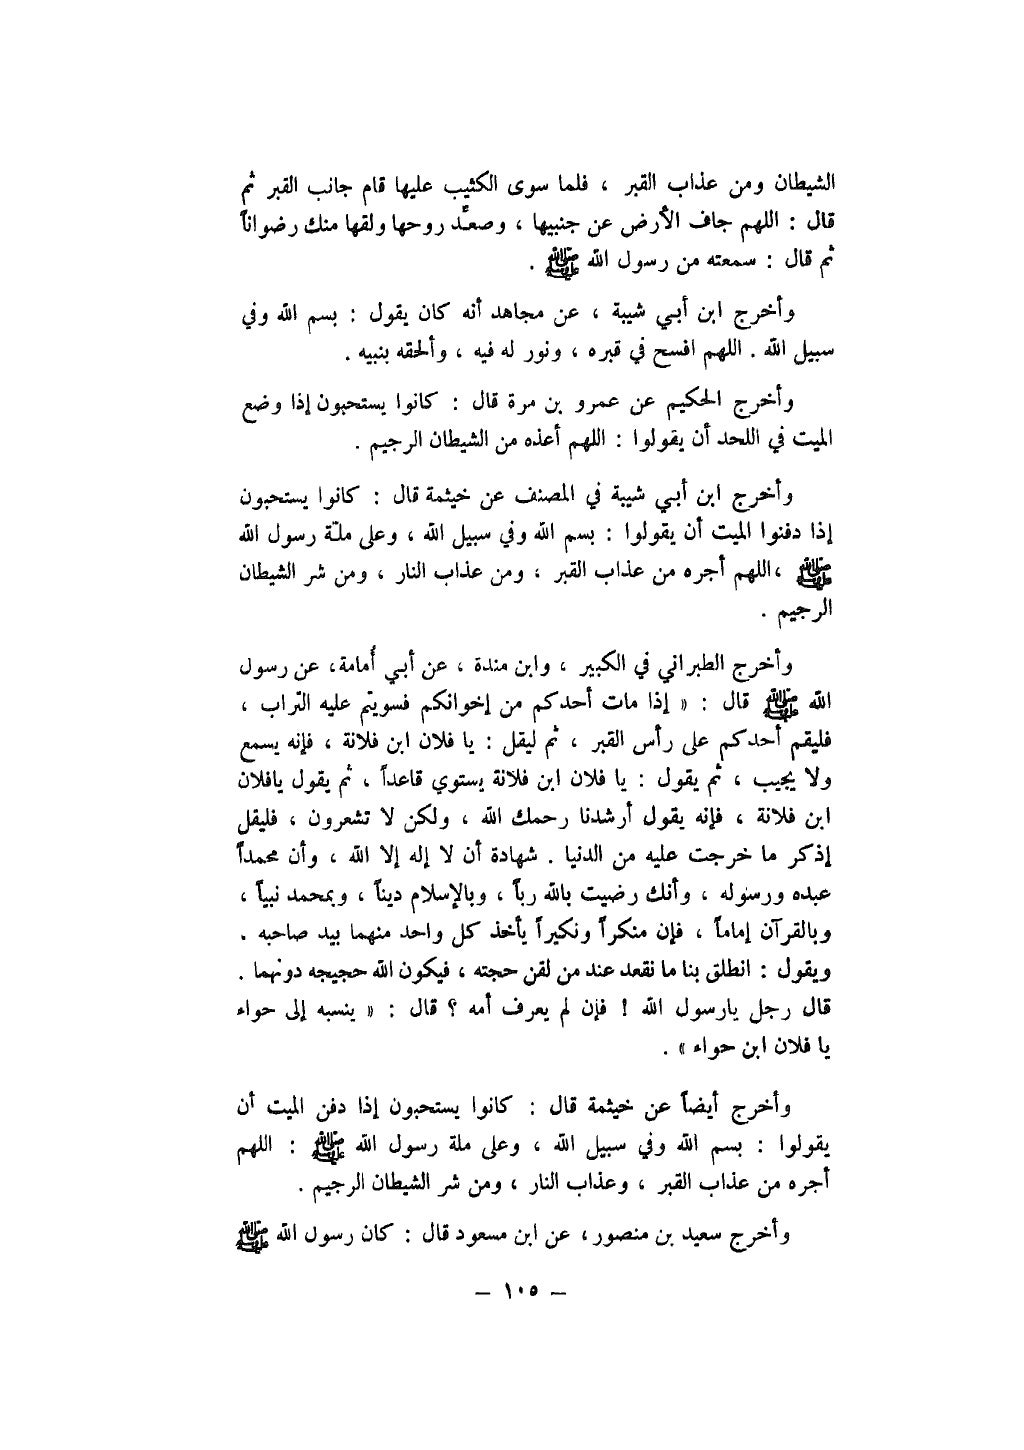 الشيطان ومن عذاب القبر ، فلما سوى الكثيب عليها قام جانب القبر ثم
قال : اللهم جاف الأرض عن جنبيها ، وصعِّد روحها ولقها منك رضواناً
ثم قال : سمعته من رسول الله ﷺ .
وأخرج ابن أبي شيبة ، عن مجاهد أنه كان يقول : بسم الله وفي
سبيل الله . اللهم افسح في قبره ، ونور له فيه ، وألحقه بنبيه .
وأخرج الحكيم عن عمرو بن مرة قال : كانوا يستحبون إذا وضع
الميت في اللحد أن يقولوا : اللهم أعذه من الشيطان الرجيم .
وأخرج ابن أبي شيبة في المصنف عن خيثمة قال : كانوا يستحبون
إذا دفنوا الميت أن يقولوا : بسم الله وفي سبيل الله ، وعلى ملّة رسول الله
ﷺ ،اللهم أجره من عذاب القبر ، ومن عذاب النار ، ومن شر الشيطان
الرجيم .
وأخرج الطبراني في الكبير ، وابن مندة ، عن أبي أُمامة، عن رسول
الله ﷺ قال : « إذا مات أحدكم من إخوانكم فسويتم عليه التراب ،
فليقم أحدكم على رأس القبر ، ثم ليقل : يا فلان ابن فلانة ، فإنه يسمع
ولا يجيب ، ثم يقول : يا فلان ابن فلانة يستوي قاعداً ، ثم يقول يافلان
ابن فلانة ، فإنه يقول أرشدنا رحمك الله ، ولكن لا تشعرون ، فليقل
إذكر ما خرجت عليه من الدنيا . شهادة أن لا إله إلا الله ، وأن محمداً
عبده ورسوله ، وأنك رضيت بالله رباً ، وبالإسلام ديناً ، وبمحمد نبياً ،
وبالقرآن إماماً ، فإن منكراً ونكيراً يأخذ كل واحد منهما بيد صاحبه .
ويقول : انطلق بنا ما نقعد عند من لقن حجته ، فيكون الله حجيجه دونهما .
قال رجل يارسول الله ! فإن لم يعرف أمه ؟ قال : « ينسبه إلى حواء
يا فلان ابن حواء » .
وأخرج أيضاً عن خيثمة قال : كانوا يستحبون إذا دفن الميت أن
يقولوا : بسم الله وفي سبيل الله ، وعلى ملة رسول الله ﷺ : اللهم
أجره من عذاب القبر ، وعذاب النار ، ومن شر الشيطان الرجيم .
وأخرج سعيد بن منصور، عن ابن مسعود قال : كان رسول الله ﷺ
– ١٠٥ –